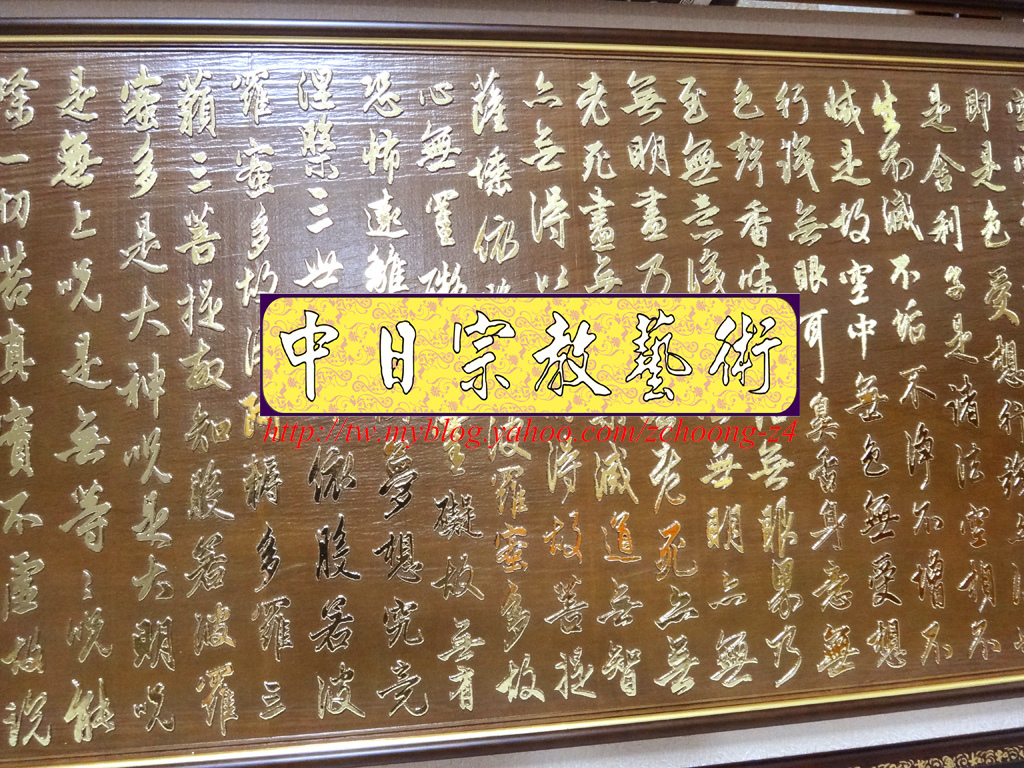 即是色受想行識
是舍利子是諸法空相不
生不滅不垢不淨不增不
減是故空中無色無受想
行識無眼耳鼻舌身意無
色聲香味無眼界乃
至無意識無明亦無
無明盡乃老死亦無
老死盡無滅道無智
亦無得以得故菩提
薩埵依般波羅蜜多故
心無罣礙罣礙故無有
恐怖遠離夢想究竟
涅槃三世依般若波
羅蜜多故得阿耨多羅三
藐三菩提故知般若波羅
蜜多是大神咒是大明咒
是無上咒是無等々咒能
除一切苦真實不虛故說
中日宗教藝術
http://tw.myblog.yahoo.com/zchoong-z4